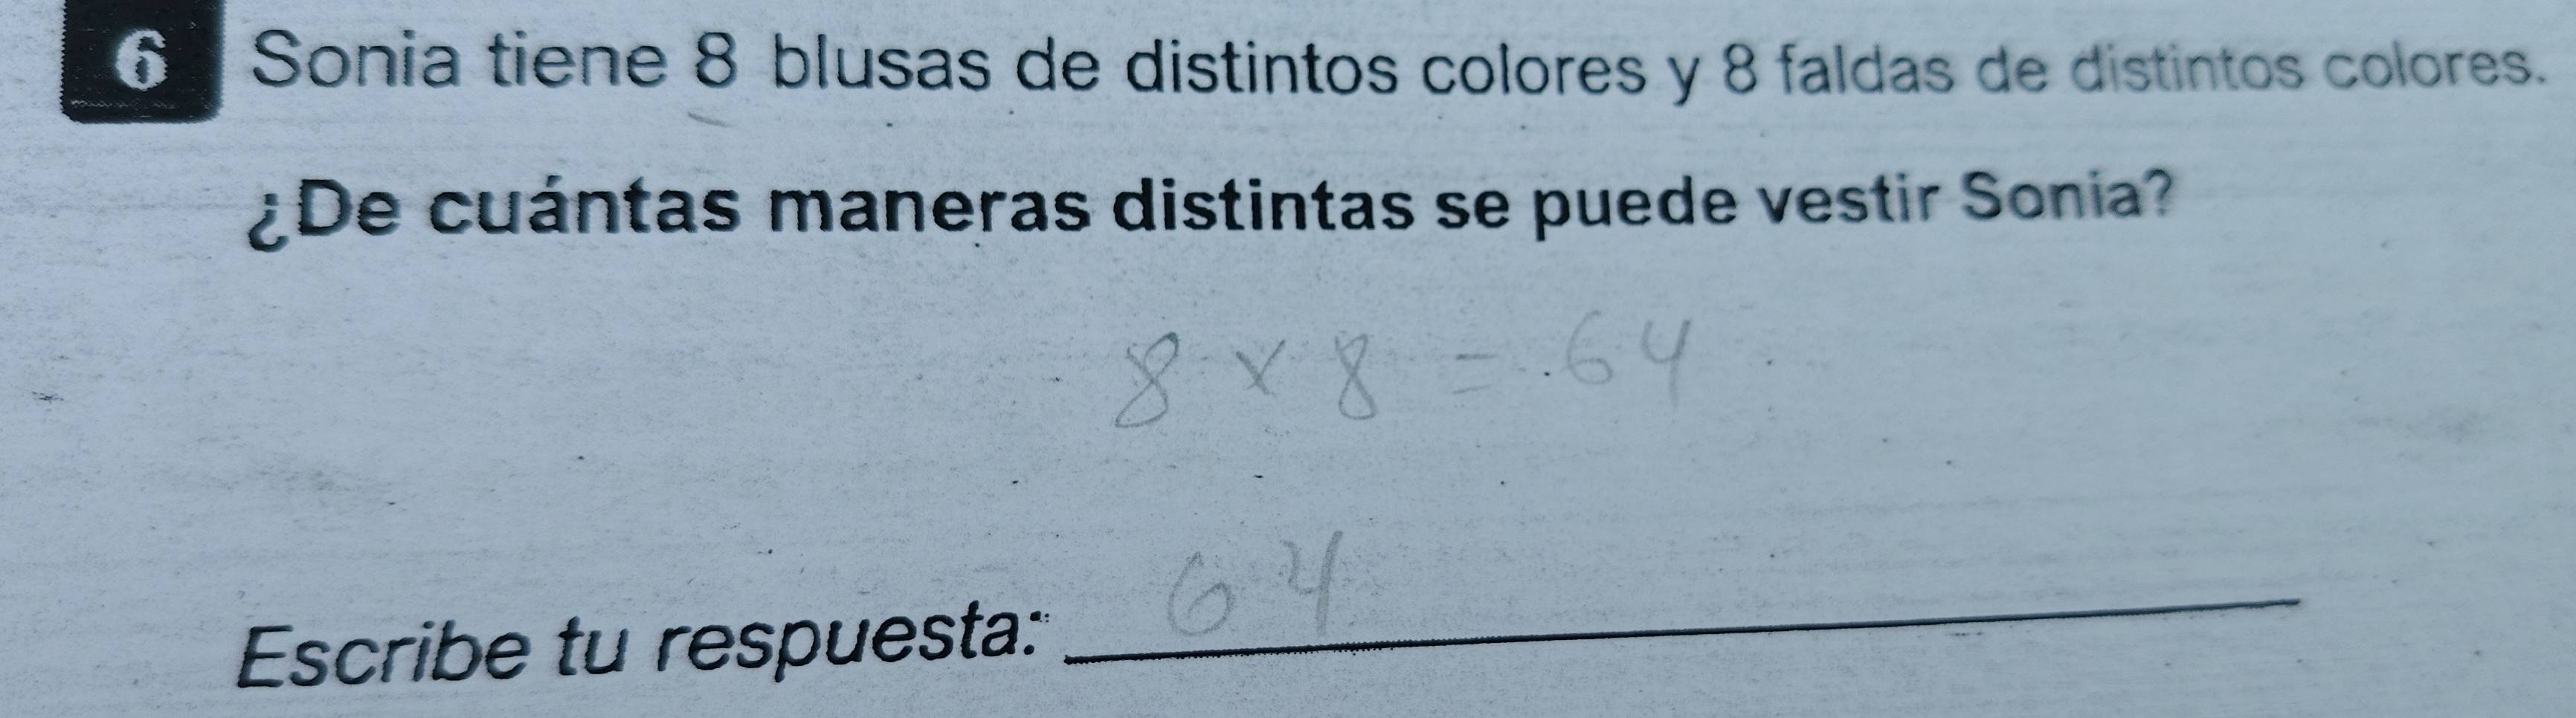 6 Sonia tiene 8 blusas de distintos colores y 8 faldas de distintos colores.
¿De cuántas maneras distintas se puede vestir Sonia?
8 x 8 = 64
Escribe tu respuesta: 64